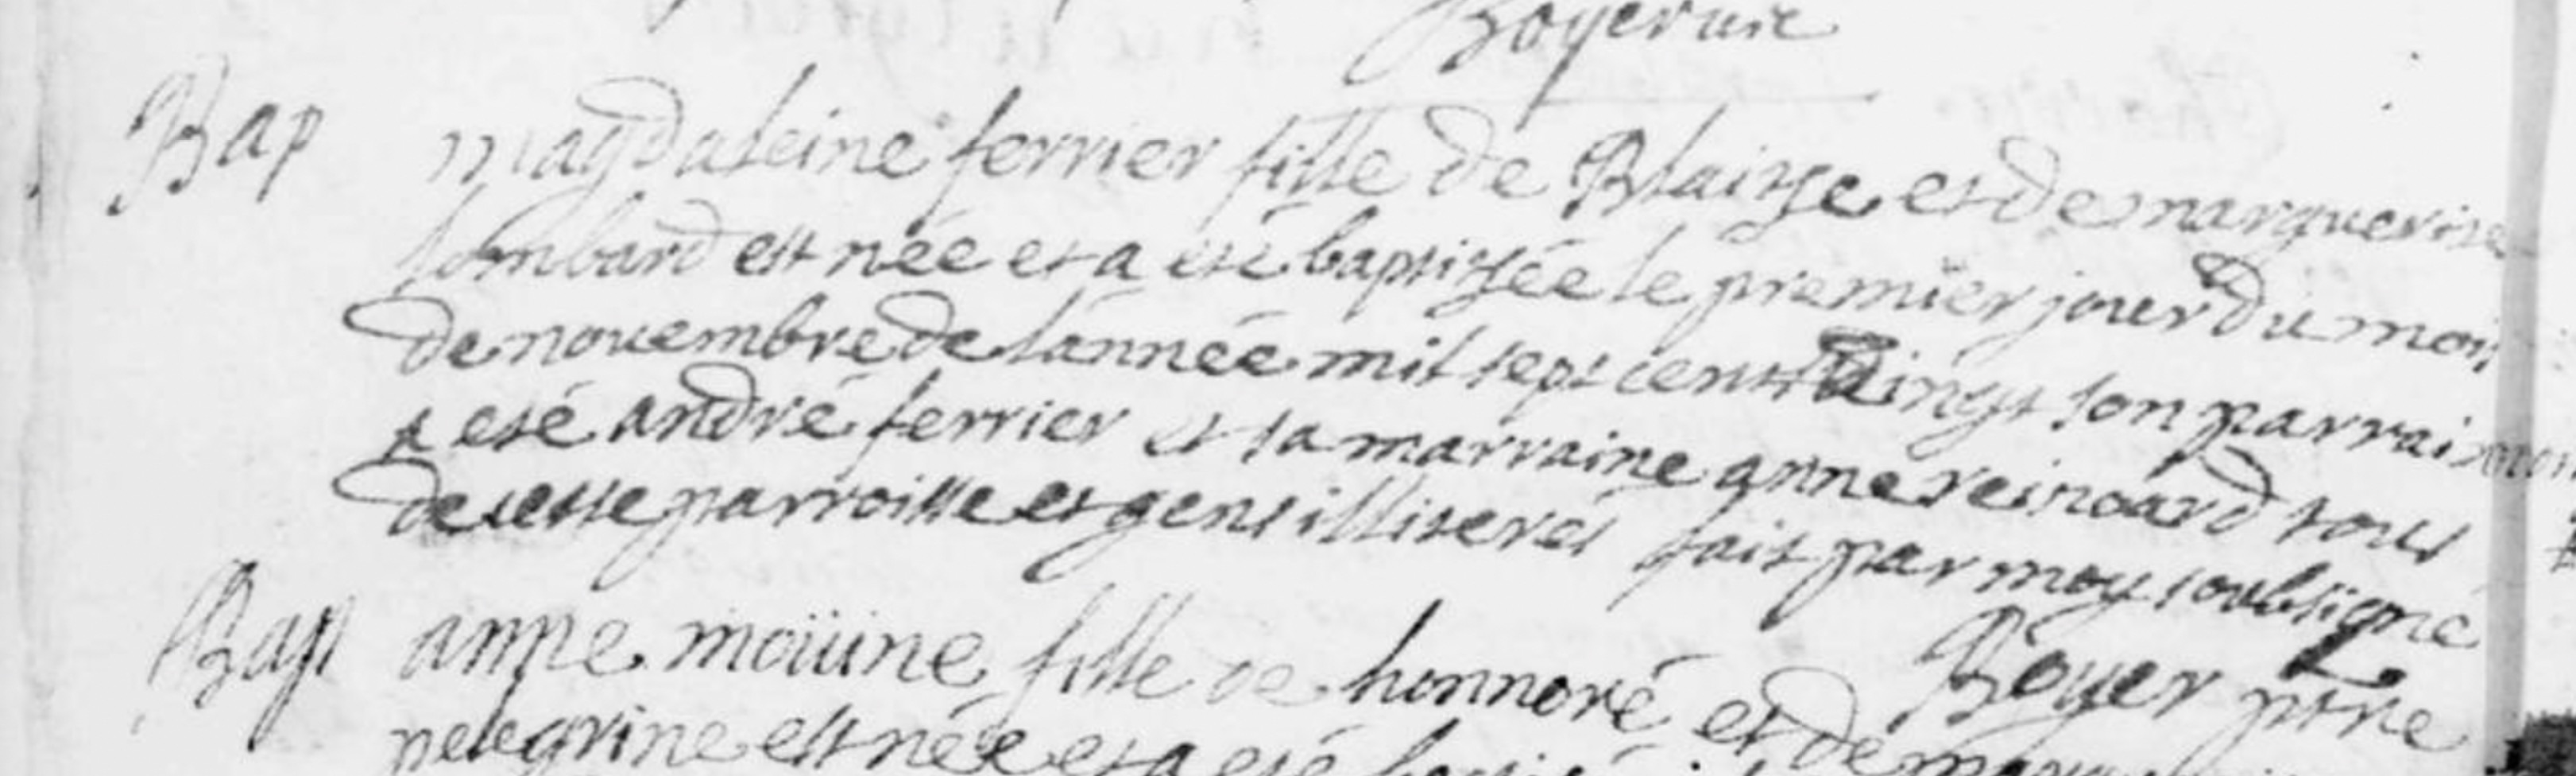 Boyer vic
Bap magdaleine ferrier fille de Blaitse et de marguerite
lombard est née et a eté baptisée le premier jour du mois
de nouembre de lannée mil sept cent vingt son parrain
a eté andré ferrier et sa marraine anne reinoard tous
de cette parroisse et gens illiterés fait par moy soubsigné
Boyer ptre
Bap anne moüine fille de honnoré et de
pelegrine est née et a eté